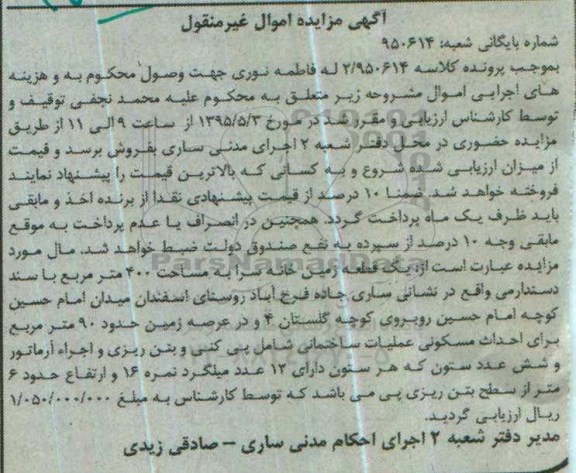 آگهی مزایده اموال غیرمنقول
شماره بایگانی شعبه: ۹۵۰۶۱۴
بموجب پرونده کلاسه ۲/۹۵۰۶۱۴ له فاطمه نوری جهت وصول محکوم به و هزینه
های اجرایی اموال مشروحه زیر متعلق به محکوم علیه محمد نجفی توقیف و
توسط کارشناس ارزیابی و مقرر شد در مورخ ۱۳۹۵/۵/۳ از ساعت ۹ الی ۱۱ از طریق
مزایده حضوری در محل دفتر شعبه ۲ اجرای مدنی ساری بفروش برسد و قیمت
از میزان ارزیابی شده شروع و به کسانی که بالاترین قیمت را پیشنهاد نمایند
فروخته خواهد شد. ضمنا ۱۰ درصد از قیمت پیشنهادی نقدا از برنده اخذ و مابقی
باید ظرف یک ماه پرداخت گردد. همچنین در انصراف یا عدم پرداخت به موقع
مابقی وجه ۱۰ درصد از سپرده به نفع صندوق دولت ضبط خواهد شد. مال مورد
مزایده عبارت است از: یک قطعه زمین خانه سرا به مساحت ۴۰۰ متر مربع با سند
دستدارمی واقع در نشانی ساری جاده فرح آباد روستای اسفندان میدان امام حسین
کوچه امام حسین روبروی کوچه گلستان ۴ و در عرصه زمین حدود ۹۰ متر مربع
برای احداث مسکونی عملیات ساختمانی شامل پی کنی و بتن ریزی و اجراء آرماتور
و شش عدد ستون که هر ستون دارای ۱۲ عدد میلگرد نمره ۱۶ و ارتفاع حدود ۶
متر از سطح بتن ریزی پی می باشد که توسط کارشناس به مبلغ ۱/۰۵۰/۰۰۰/۰۰۰
ریال ارزیابی گردید.
مدیر دفتر شعبه ۲ اجرای احکام مدنی ساری – صادقی زیدی
ParsNamadData